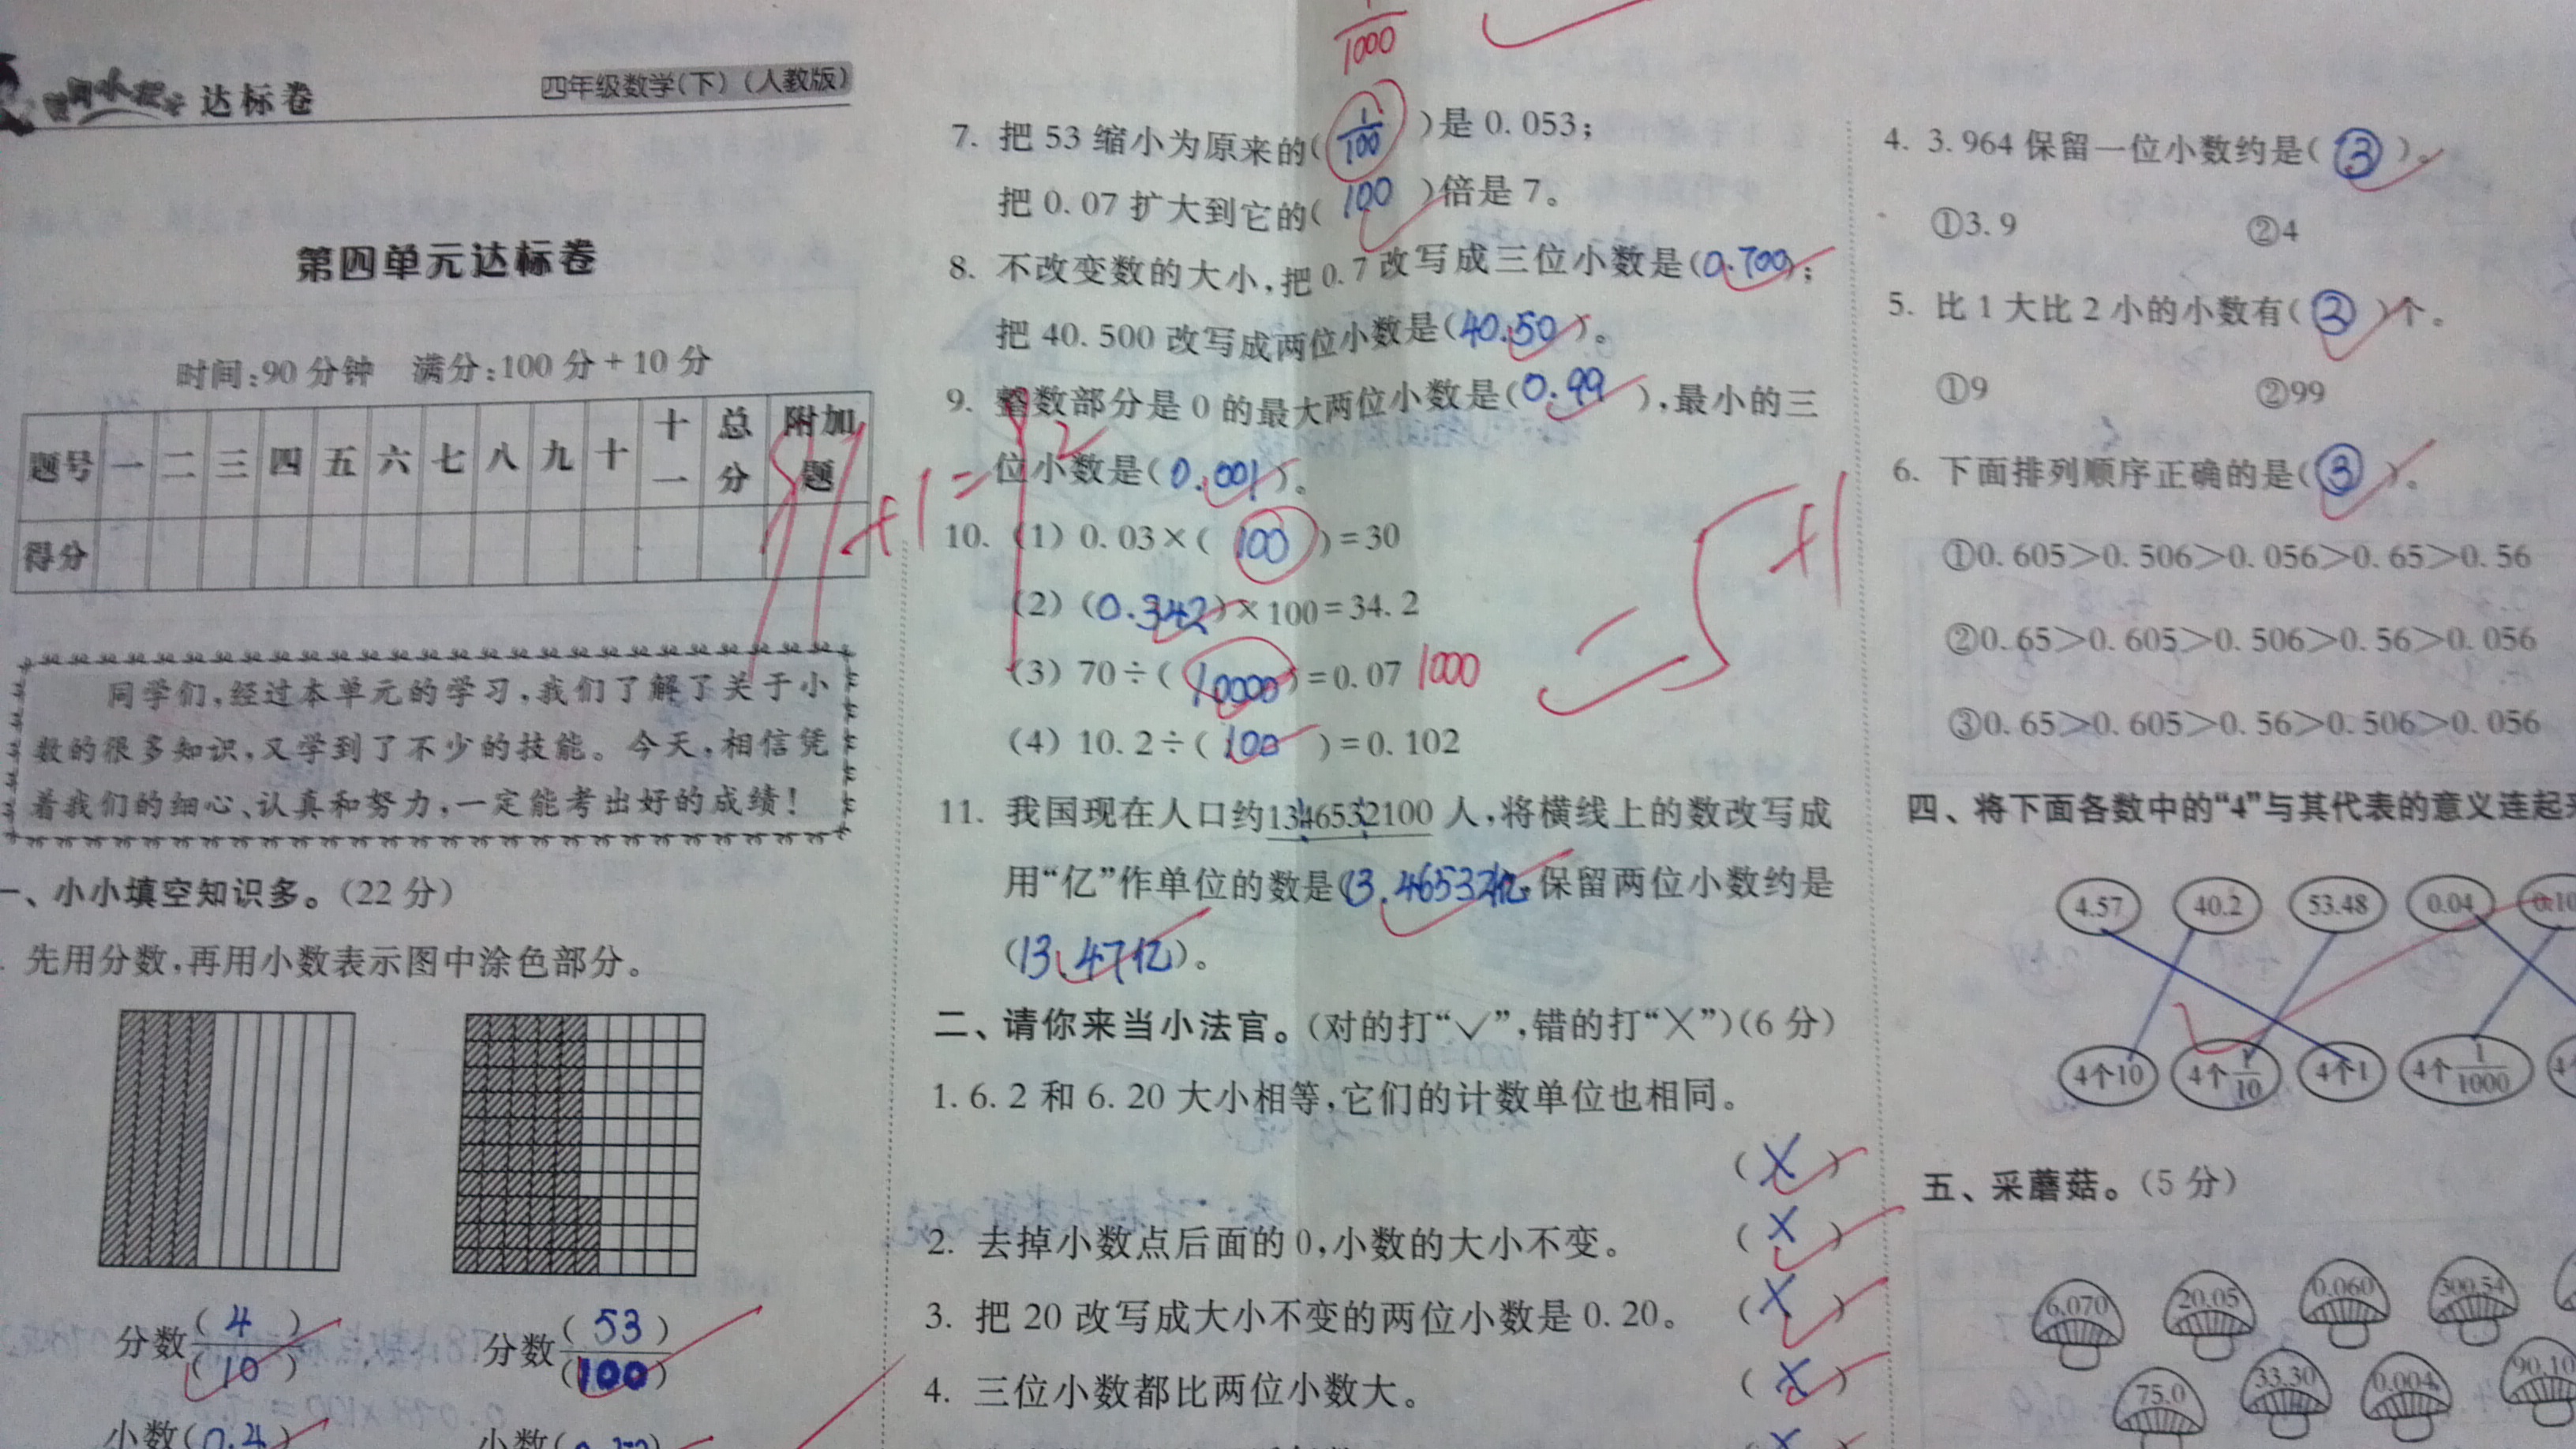 达标卷
四年级数学(下)(人教版)
第四单元达标卷
时间:90分钟 满分:100分+10分
题号 一 二 三 四 五 六 七 八 九 十 十一 总分 附加题
得分
+1=92
同学们,经过本单元的学习,我们了解了关于小
数的很多知识,又学到了不少的技能。今天,相信凭
着我们的细心、认真和努力,一定能考出好的成绩!
一、小小填空知识多。(22分)
先用分数,再用小数表示图中涂色部分。
分数(4)/(10) 分数(53)/(100)
小数(0.4) 小数(
1/1000
7. 把53缩小为原来的(1/100)是0.053;
把0.07扩大到它的(100)倍是7。
8. 不改变数的大小,把0.7改写成三位小数是(0.700);
把40.500改写成两位小数是(40.50)。
9. 整数部分是0的最大两位小数是(0.99),最小的三
位小数是(0.001)。
10. (1) 0.03×(100)=30
(2) (0.342)×100=34.2
(3) 70÷(10000)=0.07 1000
(4) 10.2÷(100)=0.102
-5+1
11. 我国现在人口约1346532100人,将横线上的数改写成
用“亿”作单位的数是(13.465321亿,保留两位小数约是
(13.47亿)。
二、请你来当小法官。(对的打“✓”,错的打“×”)(6分)
1. 6.2和6.20大小相等,它们的计数单位也相同。
(×)
2. 去掉小数点后面的0,小数的大小不变。 (×)
3. 把20改写成大小不变的两位小数是0.20。 (×)
4. 三位小数都比两位小数大。 (×)
4. 3.964保留一位小数约是(③)。
①3.9 ②4
5. 比1大比2小的小数有(③)个。
①9 ②99
6. 下面排列顺序正确的是(③)。
①0.605>0.506>0.056>0.65>0.56
②0.65>0.605>0.506>0.56>0.056
③0.65>0.605>0.56>0.506>0.056
四、将下面各数中的“4”与其代表的意义连起
4.57 40.2 53.48 0.04 0.10
4个10 4个1/10 4个1 4个1/1000
五、采蘑菇。(5分)
6.070 20.05 0.060 300.54
75.0 33.30 0.004 90.10